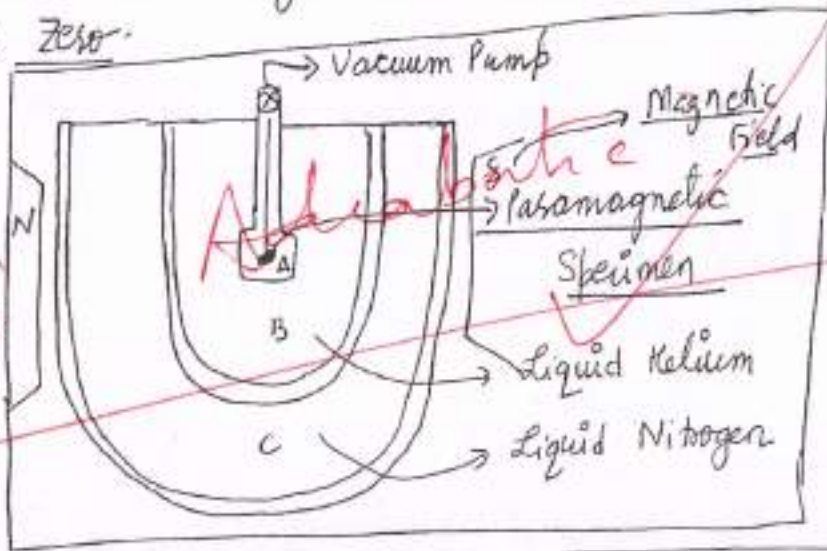 Zero.
Vacuum Pump
Magnetic
Field
N
S
Adiabatic
Paramagnetic
A
Specimen
B
Liquid Helium
C
Liquid Nitrogen